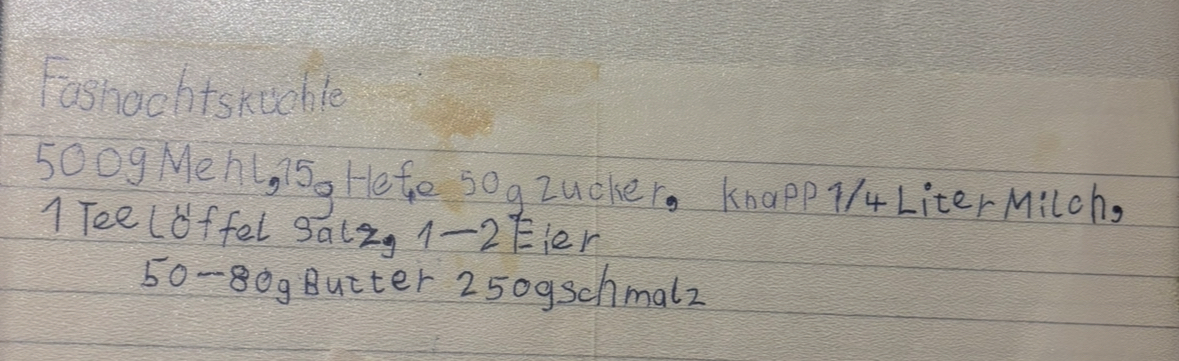 Fasnachtsküchle
500g Mehl, 15g Hefe 50g Zucker, knapp 1/4 Liter Milch,
1 Teelöffel Salz, 1-2 Eier
50-80g Butter 250g Schmalz